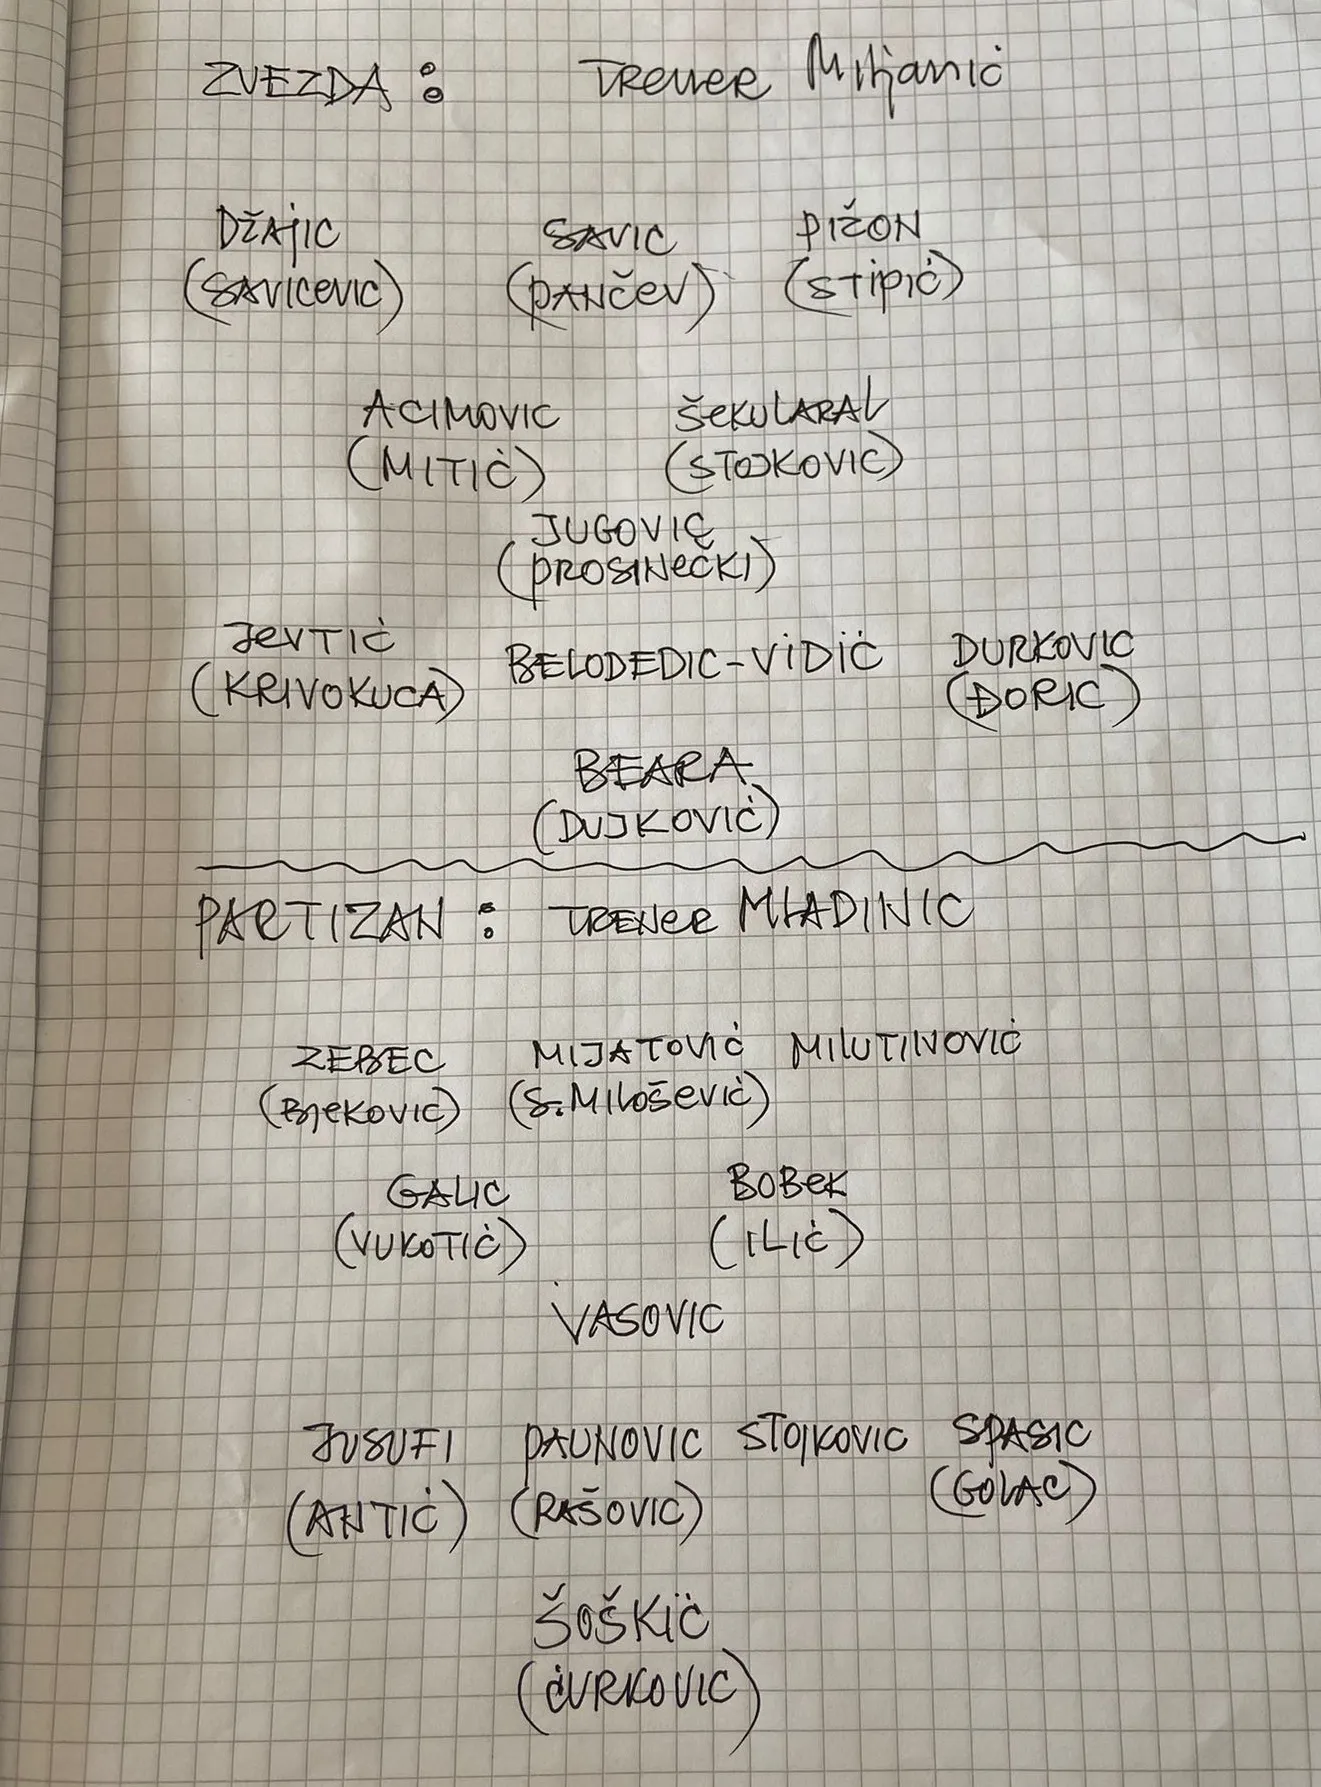 ZVEZDA: Trener Miljanić
DŽAJIC SAVIC PIŽON
(SAVICEVIC) (PANČEV) (STIPIĆ)
ACIMOVIC ŠEKULARAC
(MITIĆ) (STOJKOVIC)
JUGOVIĆ
(PROSINEČKI)
JEVTIĆ BELODEDIC-VIDIĆ DURKOVIC
(KRIVOKUCA) (ĐORIC)
BEARA
(DUJKOVIĆ)
PARTIZAN: TRENER MLADINIC
ZEBEC MIJATOVIĆ MILUTINOVIĆ
(BJEKOVIĆ) (S.MILOŠEVIĆ)
GALIC BOBEK
(VUKOTIĆ) (ILIĆ)
VASOVIC
JUSUFI PAUNOVIC STOJKOVIC SPASIC
(ANTIĆ) (RAŠOVIC) (GOLAC)
ŠOŠKIĆ
(ĆURKOVIC)